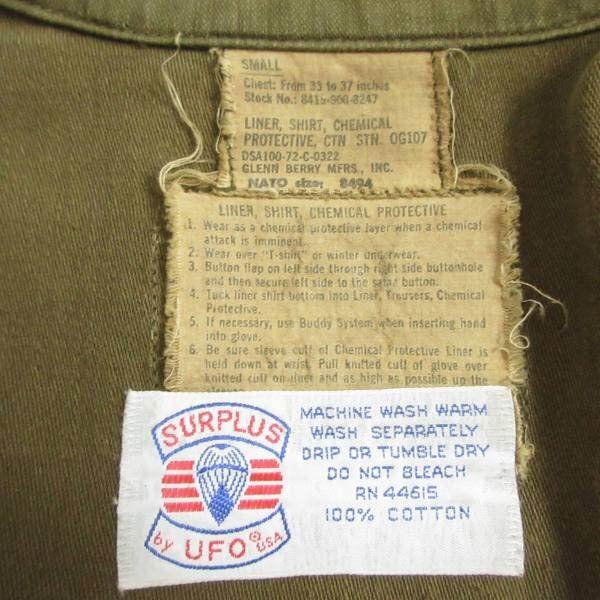 SMALL
Chest: From 33 to 37 inches
Stock No.: 8415-900-8247
LINER, SHIRT, CHEMICAL
PROTECTIVE, CTN STN. OG107
DSA100-72-C-0322
GLENN BERRY MFRS., INC.
NATO size: 8494
LINER, SHIRT, CHEMICAL PROTECTIVE
1. Wear as a chemical protective layer when a chemical
attack is imminent.
2. Wear over "T-shirt" or winter underwear.
3. Button flap on left side through right side buttonhole
and then secure left side to the same button.
4. Tuck liner shirt bottom into Liner, Trousers, Chemical
Protective.
5. If necessary, use Buddy System when inserting hand
into glove.
6. Be sure sleeve cuff of Chemical Protective Liner is
held down at wrist. Pull knitted cuff of glove over
knitted cuff on liner and as high as possible up the
SURPLUS
by UFO® USA
MACHINE WASH WARM
WASH SEPARATELY
DRIP OR TUMBLE DRY
DO NOT BLEACH
RN 44615
100% COTTON